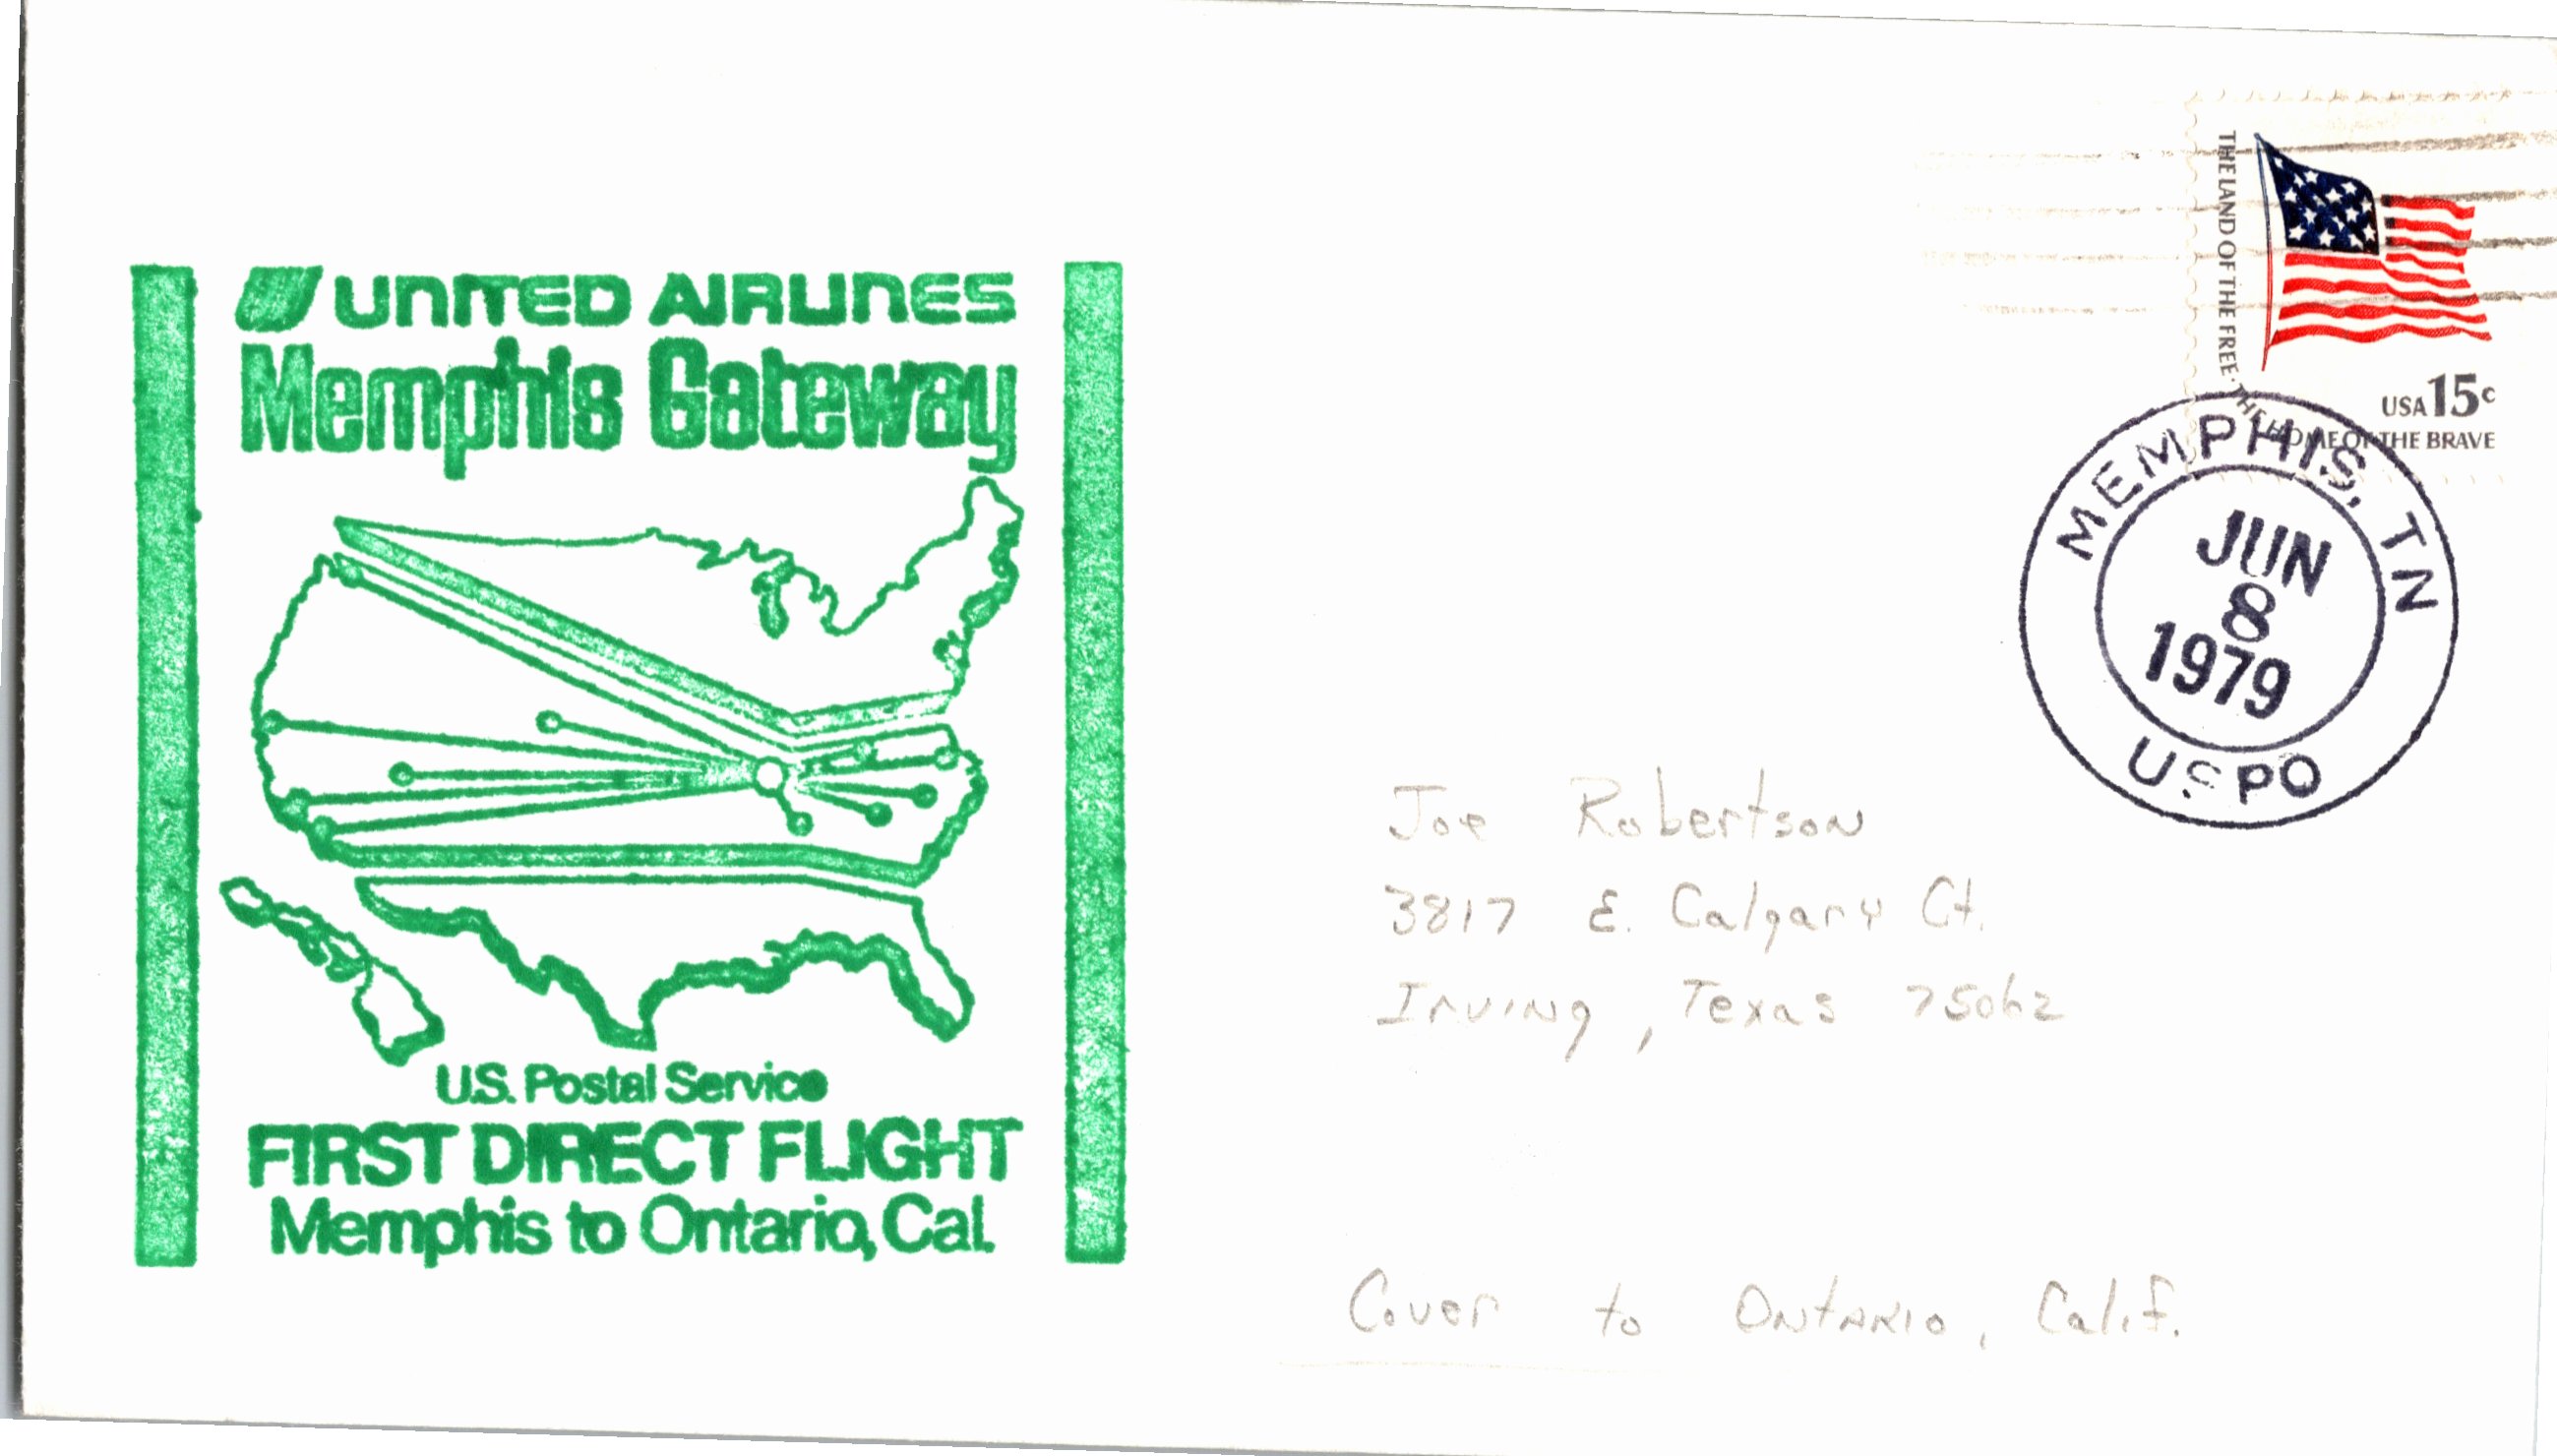 UNITED AIRLINES
Memphis Gateway
U.S. Postal Service
FIRST DIRECT FLIGHT
Memphis to Ontario, Cal.
THE LAND OF THE FREE · THE HOME OF THE BRAVE
USA 15c
MEMPHIS, TN
JUN
8
1979
USPO
Joe Robertson
3817 E. Calgary Ct.
Irving, Texas 75062
Cover to Ontario, Calif.